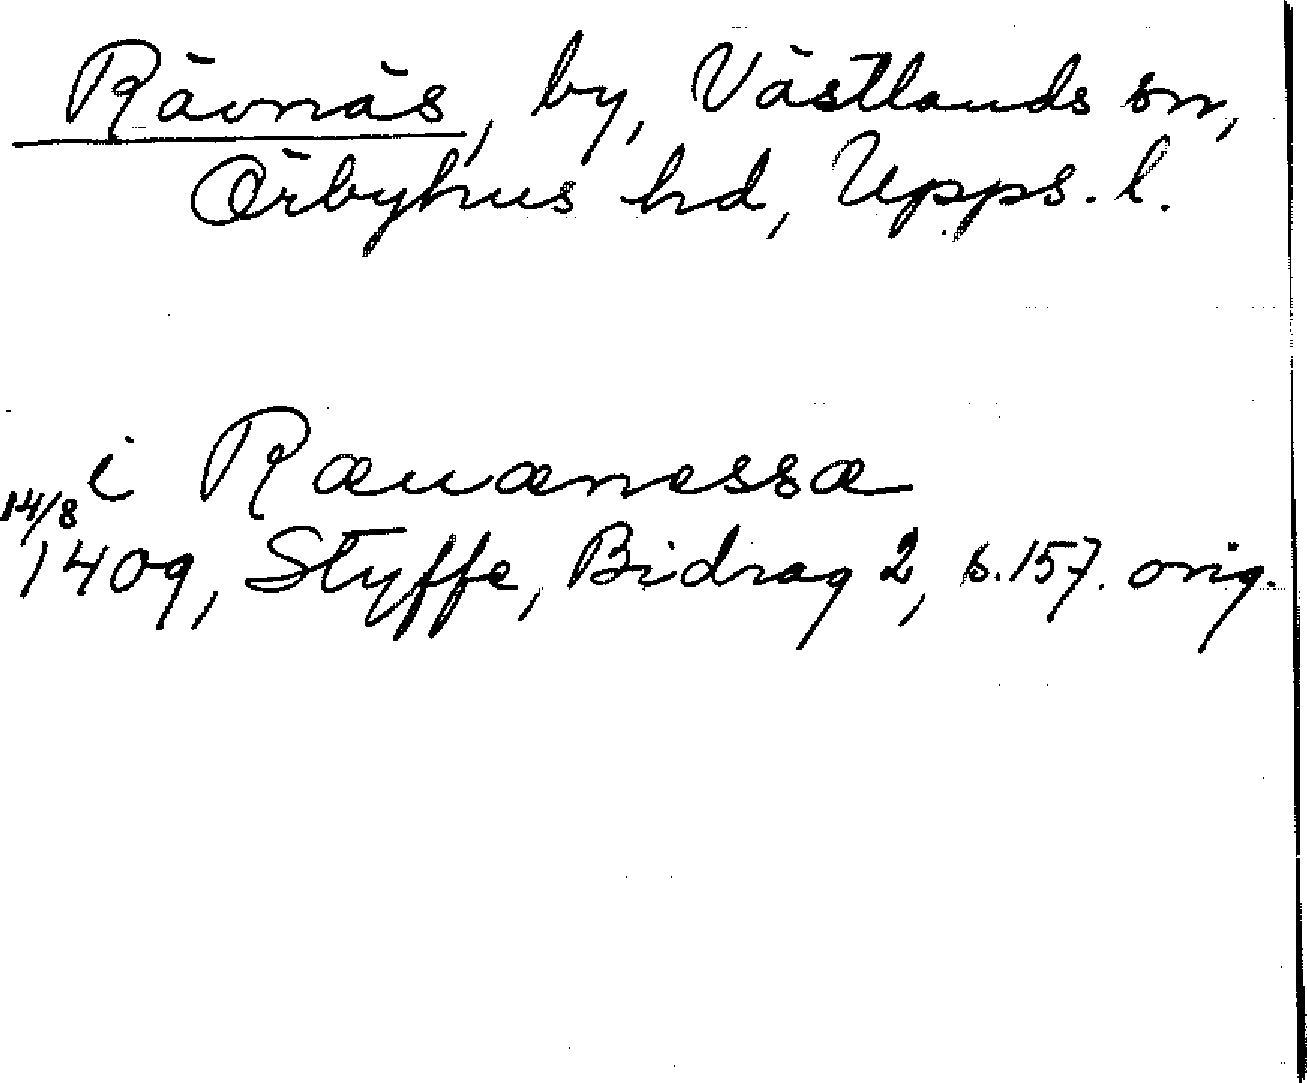 Rävnäs, by, Västlands sn,
Örbyhus hd, Upps. l.
i Ræuænessæ
14/8
1409, Styffe, Bidrag 2, s. 157. orig.